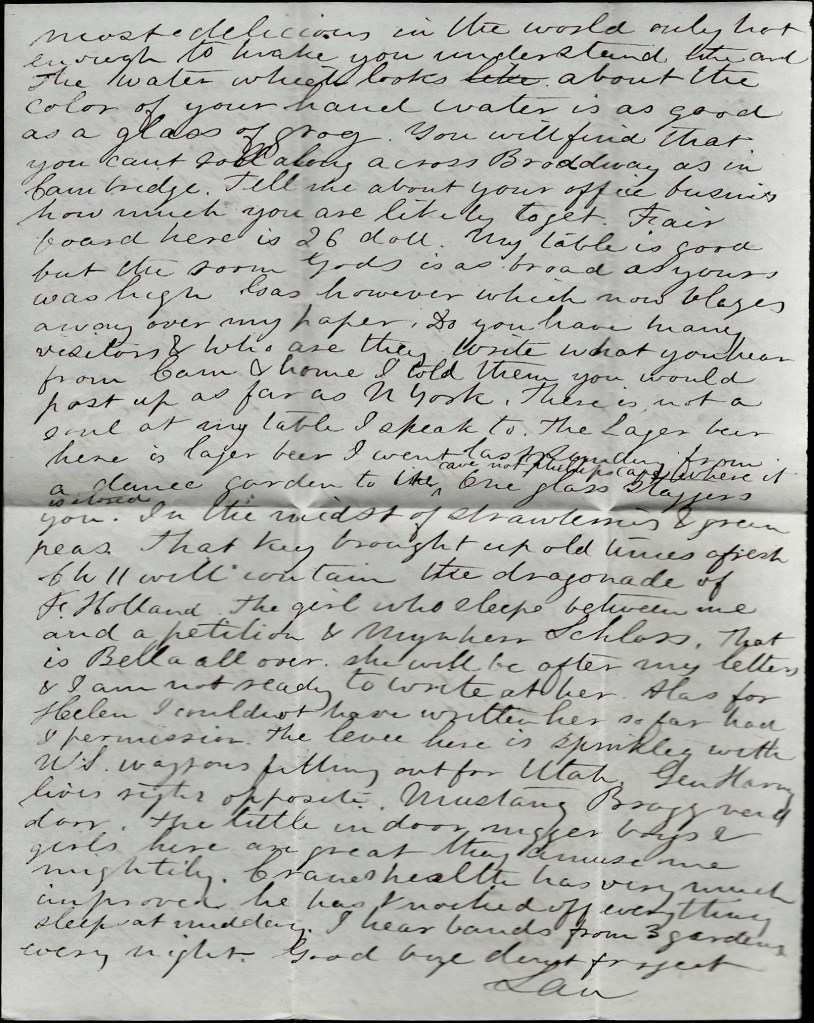 most delicious in the world only hot
enough to make you understand it and
the water which looks like about the
color of your hand water is as good
as a glass of grog. You will find that
you cant roll along across Broadway as in
Cambridge. Tell me about your office business
how much you are likely to get. Fair
board here is 26 doll. My table is good
but the room Gods is as broad as yours
was high Gas however which now blazes
away over my paper. Do you have many
visitors & who are they write what you hear
from Cam & home I told them you would
post up as far as N York. There is not a
soul at my table I speak to. The Lager beer
here is lager beer I went last Sunday from
a dance garden to the cave not where it
is stored One glass staggers
you. In the midst of strawberries & green
peas. That key brought up old times afresh
Ch 11 will contain the dragonade of
F. Holland. The girl who sleeps between me
and a petition & Mynherr Schloss. That
is Bella all over. she will be after my letters
& I am not ready to write at her. Alas for
Helen I could not have written her so far had
I permission. The levee here is sprinkled with
U.S. waggons fitting out for Utah. Gen Harney
lives right opposite. Mustang Bragg next
door. The little indoor nigger boys &
girls here are great they amuse me
mightily. Cranes health has very much
improved he has knocked off everything
sleeps at midday. I hear bands from 3 gardens
every night. Good bye dont forget
Law